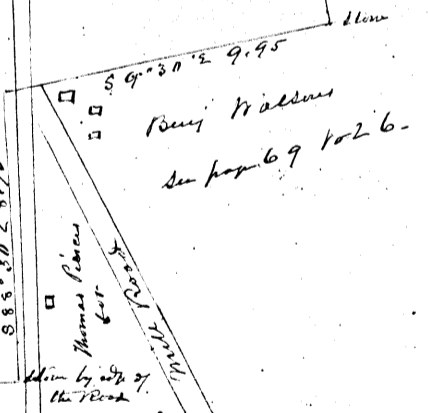 Stone
S 9° 30' E 9.95
Benj Walsons
See page 69 No 26-
Thomas Pierces
for
Mill Road
Stone by edge of
the Road